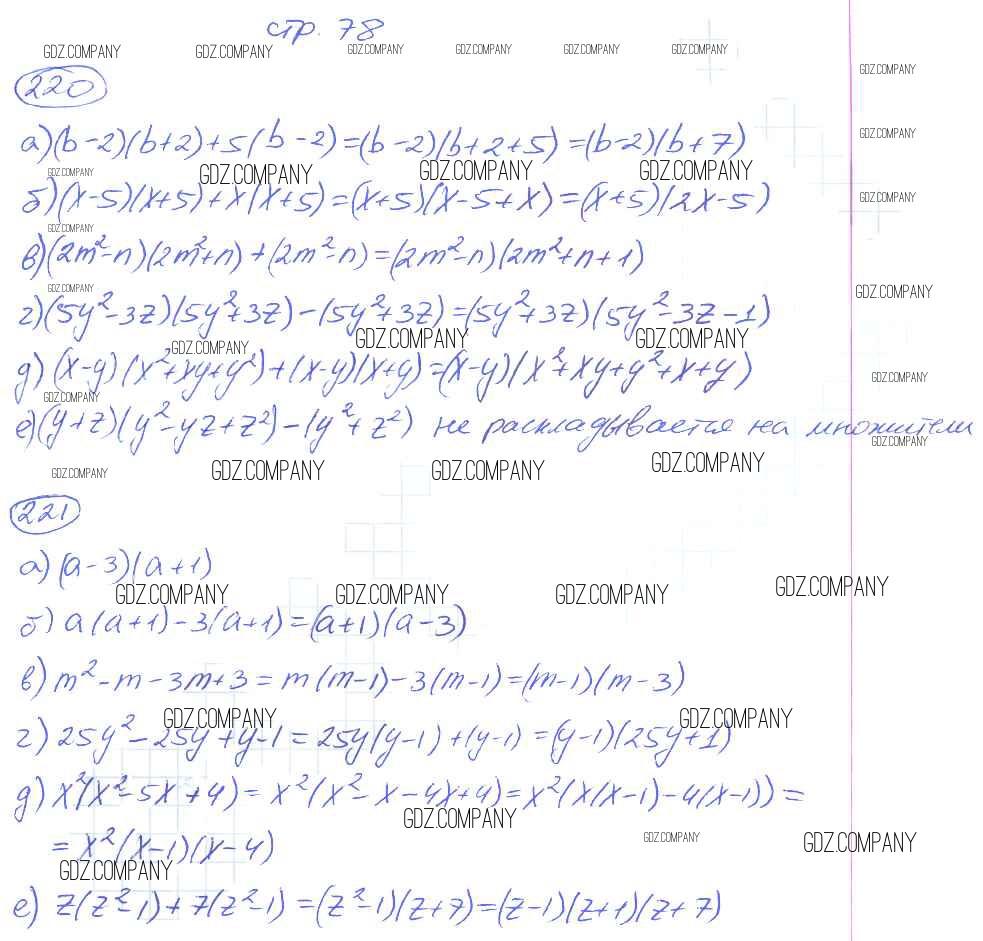 стр. 78
GDZ.COMPANY GDZ.COMPANY GDZ.COMPANY GDZ.COMPANY GDZ.COMPANY GDZ.COMPANY
GDZ.COMPANY
220
GDZ.COMPANY
а) (b-2)(b+2)+5(b-2)=(b-2)(b+2+5)=(b-2)(b+7)
GDZ.COMPANY GDZ.COMPANY GDZ.COMPANY GDZ.COMPANY
б) (x-5)(x+5)+x(x+5)=(x+5)(x-5+x)=(x+5)(2x-5)
GDZ.COMPANY
GDZ.COMPANY
в) (2m²-n)(2m²+n)+(2m²-n)=(2m²-n)(2m²+n+1)
GDZ.COMPANY GDZ.COMPANY
г) (5y²-3z)(5y²+3z)-(5y²+3z)=(5y²+3z)(5y²-3z-1)
GDZ.COMPANY GDZ.COMPANY GDZ.COMPANY
д) (x-y)(x²+xy+y²)+(x-y)(x+y)=(x-y)(x²+xy+y²+x+y)
GDZ.COMPANY
GDZ.COMPANY
е) (y+z)(y²-yz+z²)-(y²+z²) не раскладывается на множители
GDZ.COMPANY
GDZ.COMPANY GDZ.COMPANY GDZ.COMPANY GDZ.COMPANY
221
а) (a-3)(a+1)
GDZ.COMPANY GDZ.COMPANY GDZ.COMPANY GDZ.COMPANY
б) a(a+1)-3(a+1)=(a+1)(a-3)
в) m²-m-3m+3=m(m-1)-3(m-1)=(m-1)(m-3)
GDZ.COMPANY GDZ.COMPANY
г) 25y²-25y+y-1=25y(y-1)+(y-1)=(y-1)(25y+1)
д) x²(x²-5x+4)=x²(x²-x-4x+4)=x²(x(x-1)-4(x-1))=
GDZ.COMPANY
=x²(x-1)(x-4)
GDZ.COMPANY GDZ.COMPANY
GDZ.COMPANY
е) z(z²-1)+7(z²-1)=(z²-1)(z+7)=(z-1)(z+1)(z+7)